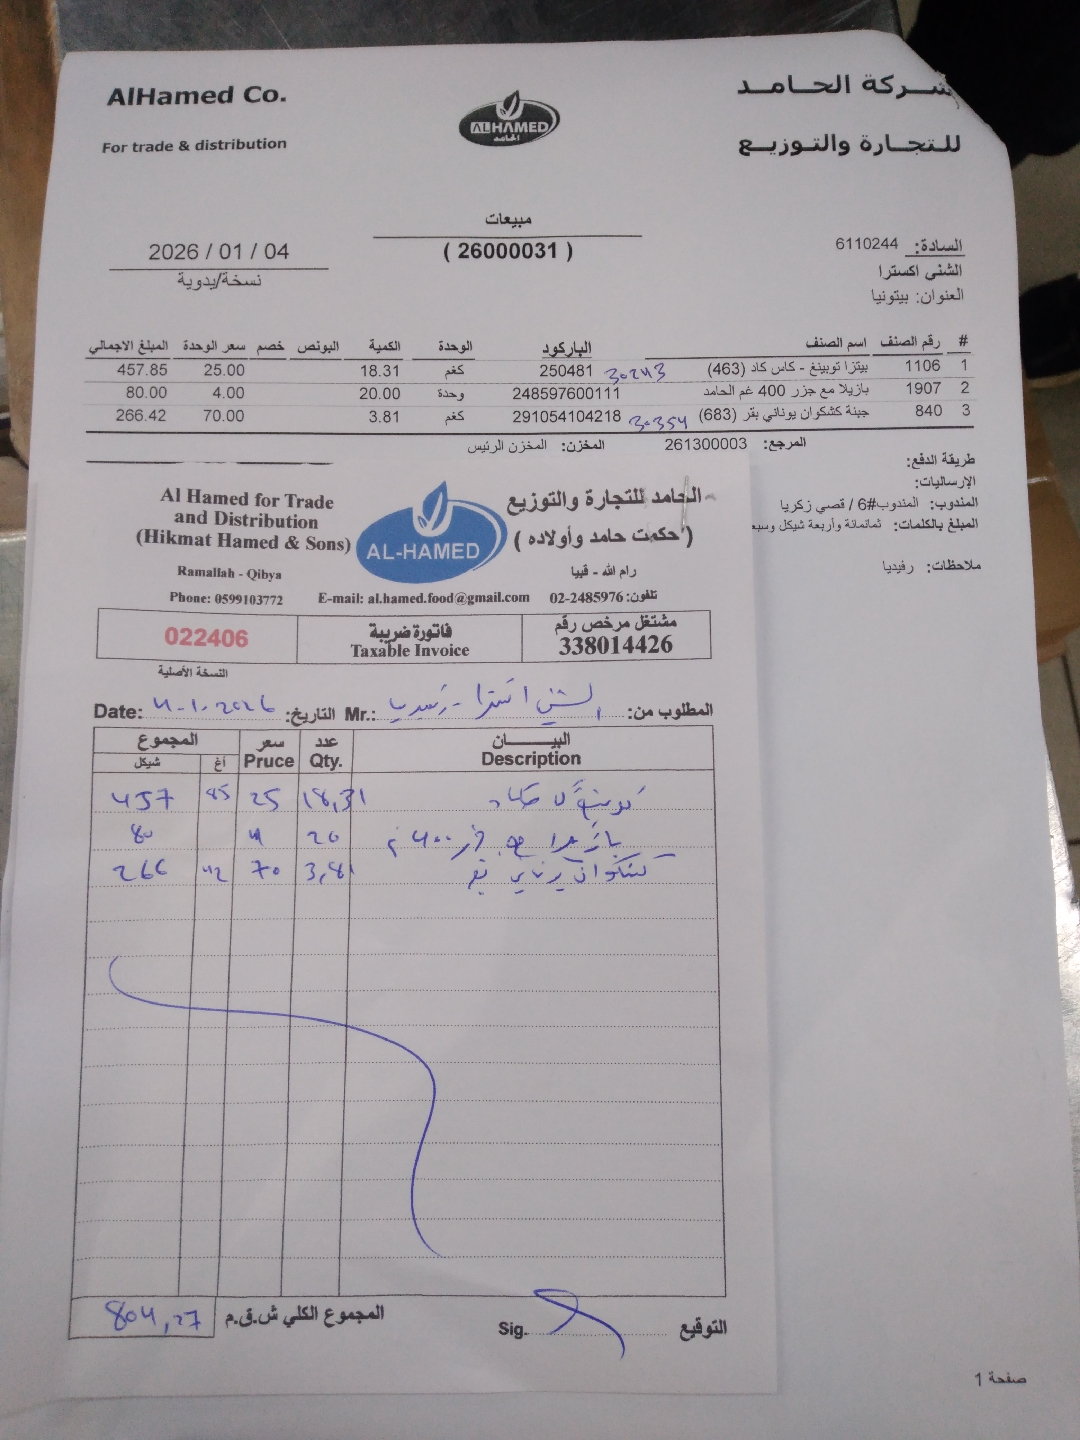 AlHamed Co.
For trade & distribution
ALHAMED
الحامد
شركة الحامد
للتجارة والتوزيع
مبيعات
( 26000031 )
2026 / 01 / 04
نسخة/يدوية
السادة: 6110244
الشني اكسترا
العنوان: بيتونيا
# رقم الصنف اسم الصنف الباركود الوحدة الكمية البونص خصم سعر الوحدة المبلغ الاجمالي
1 1106 بيتزا توبينغ - كاس كاد (463) 30243 250481 كغم 18.31 25.00 457.85
2 1907 بازيلا مع جزر 400 غم الحامد 248597600111 وحدة 20.00 4.00 80.00
3 840 جبنة كشكوان يوناني بقر (683) 30354 291054104218 كغم 3.81 70.00 266.42
المرجع: 261300003 المخزن: المخزن الرئيس
طريقة الدفع:
الإرساليات:
المندوب: المندوب#6 / قصي زكريا
المبلغ بالكلمات: ثمانمائة وأربعة شيكل وسبع
ملاحظات: رفيديا
Al Hamed for Trade
and Distribution
(Hikmat Hamed & Sons)
Ramallah - Qibya
Phone: 0599103772
E-mail: al.hamed.food@gmail.com
AL-HAMED
الحامد للتجارة والتوزيع
(حكمت حامد وأولاده )
رام الله - قبيا
تلفون: 02-2485976
022406
فاتورة ضريبة
Taxable Invoice
مشتغل مرخص رقم
338014426
النسخة الأصلية
المطلوب من: الشني اكسترا - رفيديا Mr.:
التاريخ: ٤-١-٢٠٢٦ Date:
البيـــــان عدد سعر المجموع
Description Qty. Pruce أغ شيكل
كاد 18,31 25 85 457
بازيلا مع جزر ٤٠٠ غ 20 4 80
كشكوان يوناني بقر 3,81 70 42 266
المجموع الكلي ش.ق.م 804,27
التوقيع Sig.
صفحة 1